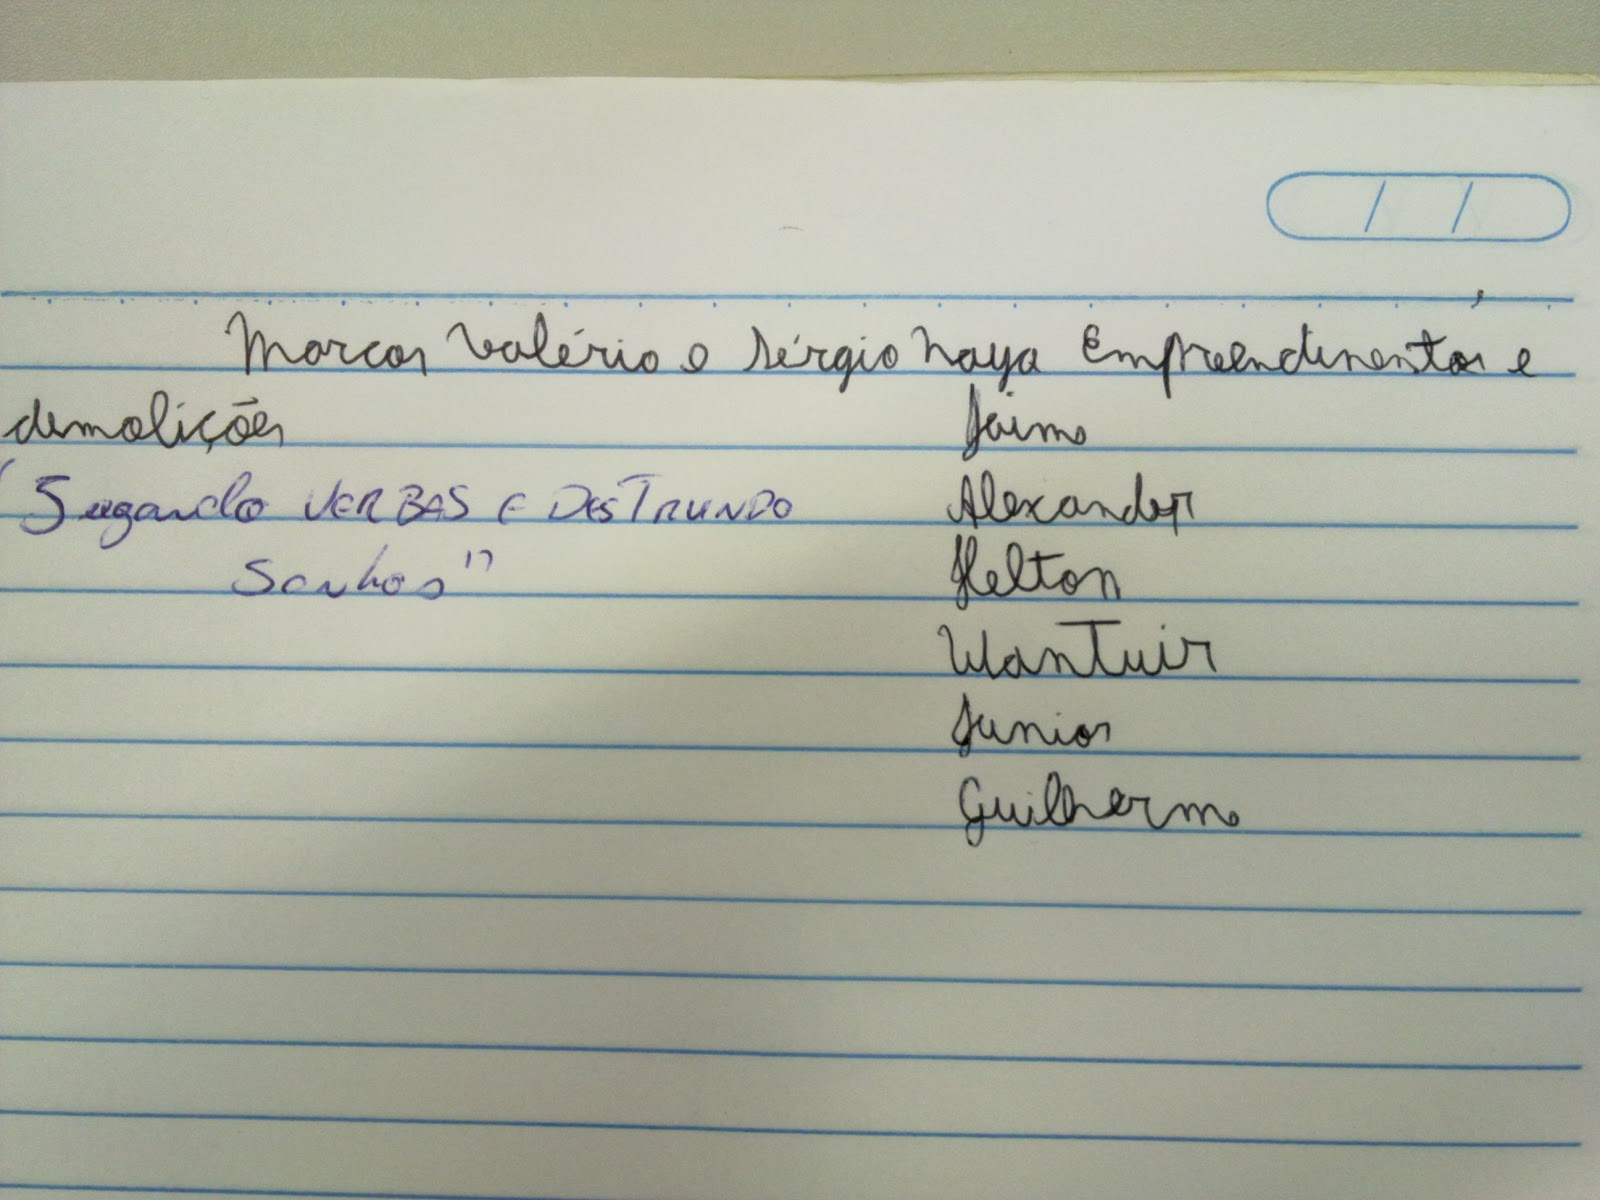 Marcos Valério e Sérgio Naya Empreendimentos e
demolições
Jaime
"Sugando VERBAS E DESTRUINDO
Alexander
Sonhos"
Helton
Wantuir
Junior
Guilherme